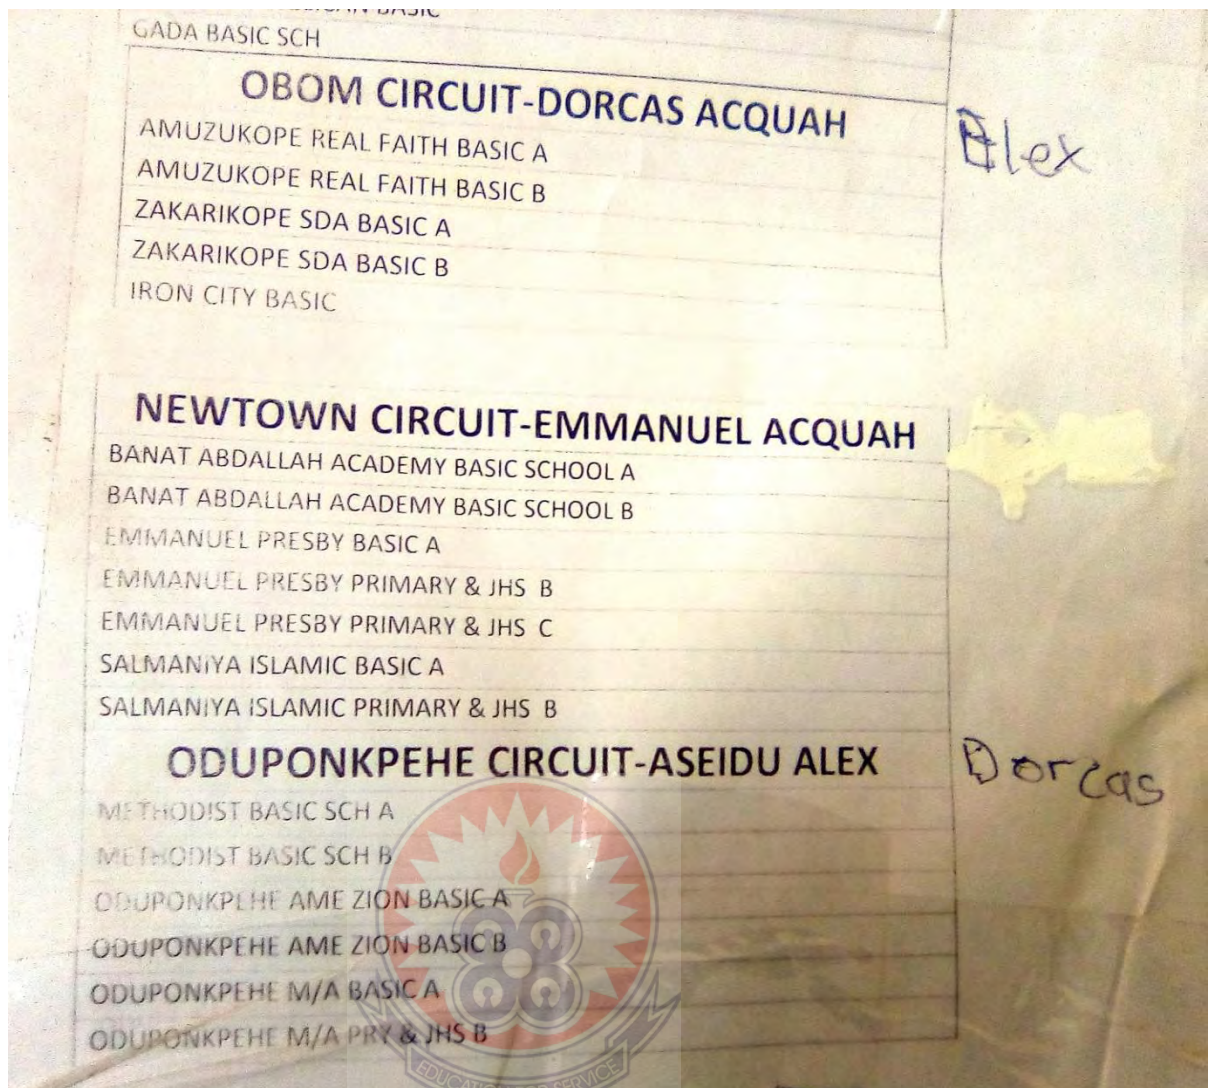 BASIC
GADA BASIC SCH
OBOM CIRCUIT-DORCAS ACQUAH
Alex
AMUZUKOPE REAL FAITH BASIC A
AMUZUKOPE REAL FAITH BASIC B
ZAKARIKOPE SDA BASIC A
ZAKARIKOPE SDA BASIC B
IRON CITY BASIC
NEWTOWN CIRCUIT-EMMANUEL ACQUAH
BANAT ABDALLAH ACADEMY BASIC SCHOOL A
BANAT ABDALLAH ACADEMY BASIC SCHOOL B
EMMANUEL PRESBY BASIC A
EMMANUEL PRESBY PRIMARY & JHS B
EMMANUEL PRESBY PRIMARY & JHS C
SALMANIYA ISLAMIC BASIC A
SALMANIYA ISLAMIC PRIMARY & JHS B
ODUPONKPEHE CIRCUIT-ASEIDU ALEX
Dorcas
METHODIST BASIC SCH A
METHODIST BASIC SCH B
ODUPONKPEHE AME ZION BASIC A
ODUPONKPEHE AME ZION BASIC B
ODUPONKPEHE M/A BASIC A
ODUPONKPEHE M/A PRY & JHS B
EDUCATION FOR SERVICE